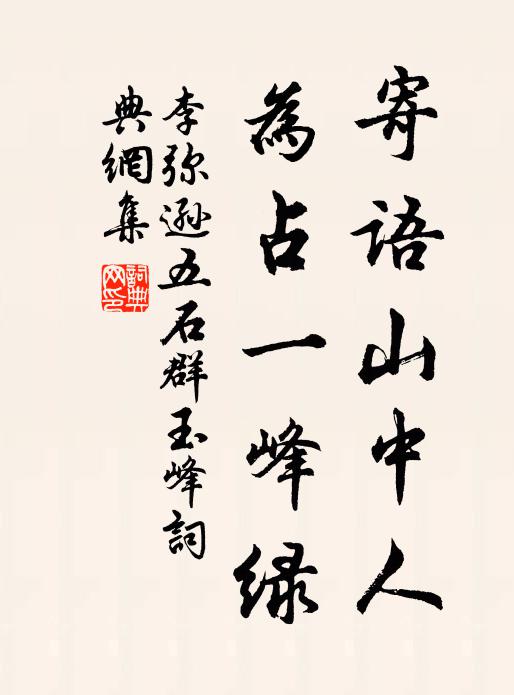 寄语山中人
為占一峰绿
李弥遜五石群玉峰詞
典網集
詞典网印